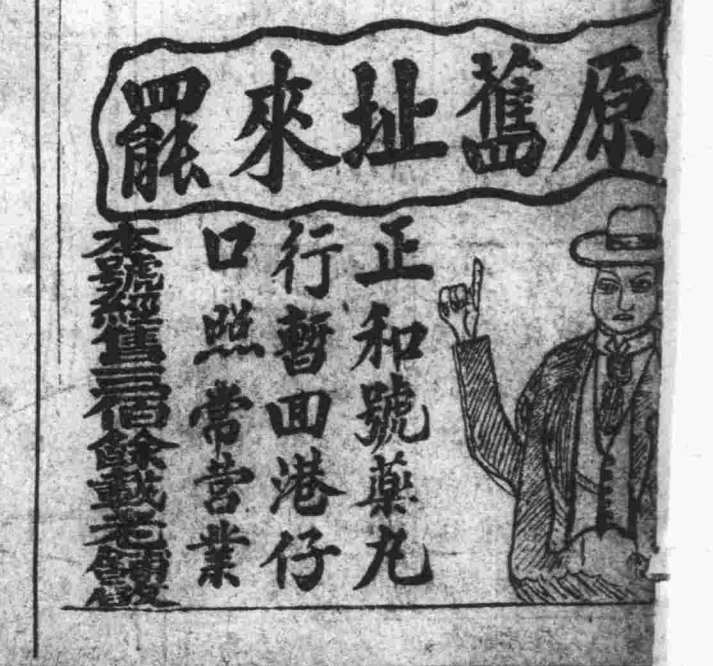 原舊址來罷
正和號藥丸
行暫囬港仔
口照常营業
本號經售三佰餘載老舖